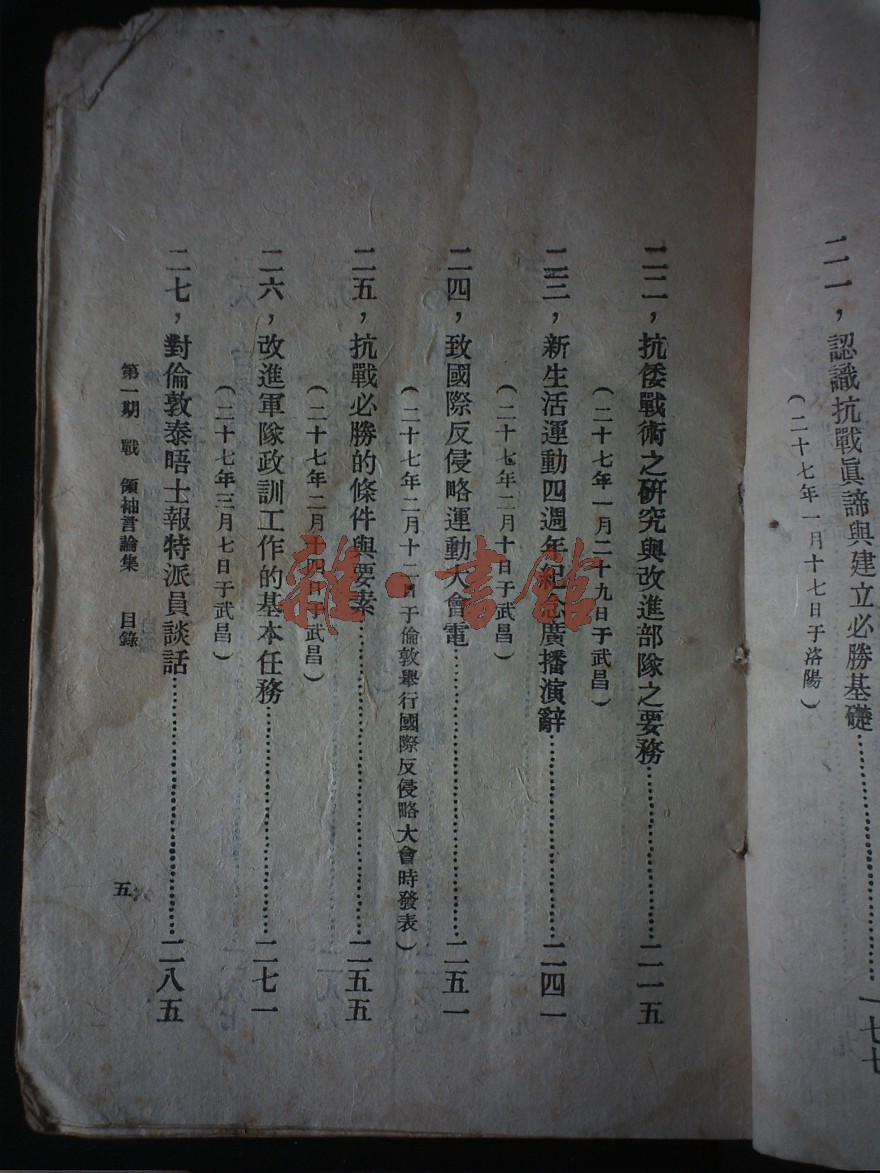 二一，認識抗戰眞諦與建立必勝基礎……一七七
（二十七年一月十七日于洛陽）
二二，抗倭戰術之硏究與改進部隊之要務……二一五
（二十七年一月二十九日于武昌）
二三，新生活運動四週年紀念廣播演辭……二四一
（二十七年二月十日于武昌）
二四，致國際反侵略運動大會電……二五一
（二十七年二月十二日于倫敦舉行國際反侵略大會時發表）
二五，抗戰必勝的條件與要素……二五五
（二十七年二月十四日于武昌）
二六，改進軍隊政訓工作的基本任務……二七一
（二十七年三月七日于武昌）
二七，對倫敦泰晤士報特派員談話……二八五
第一期戰 領袖言論集 目錄
五
雜·書館